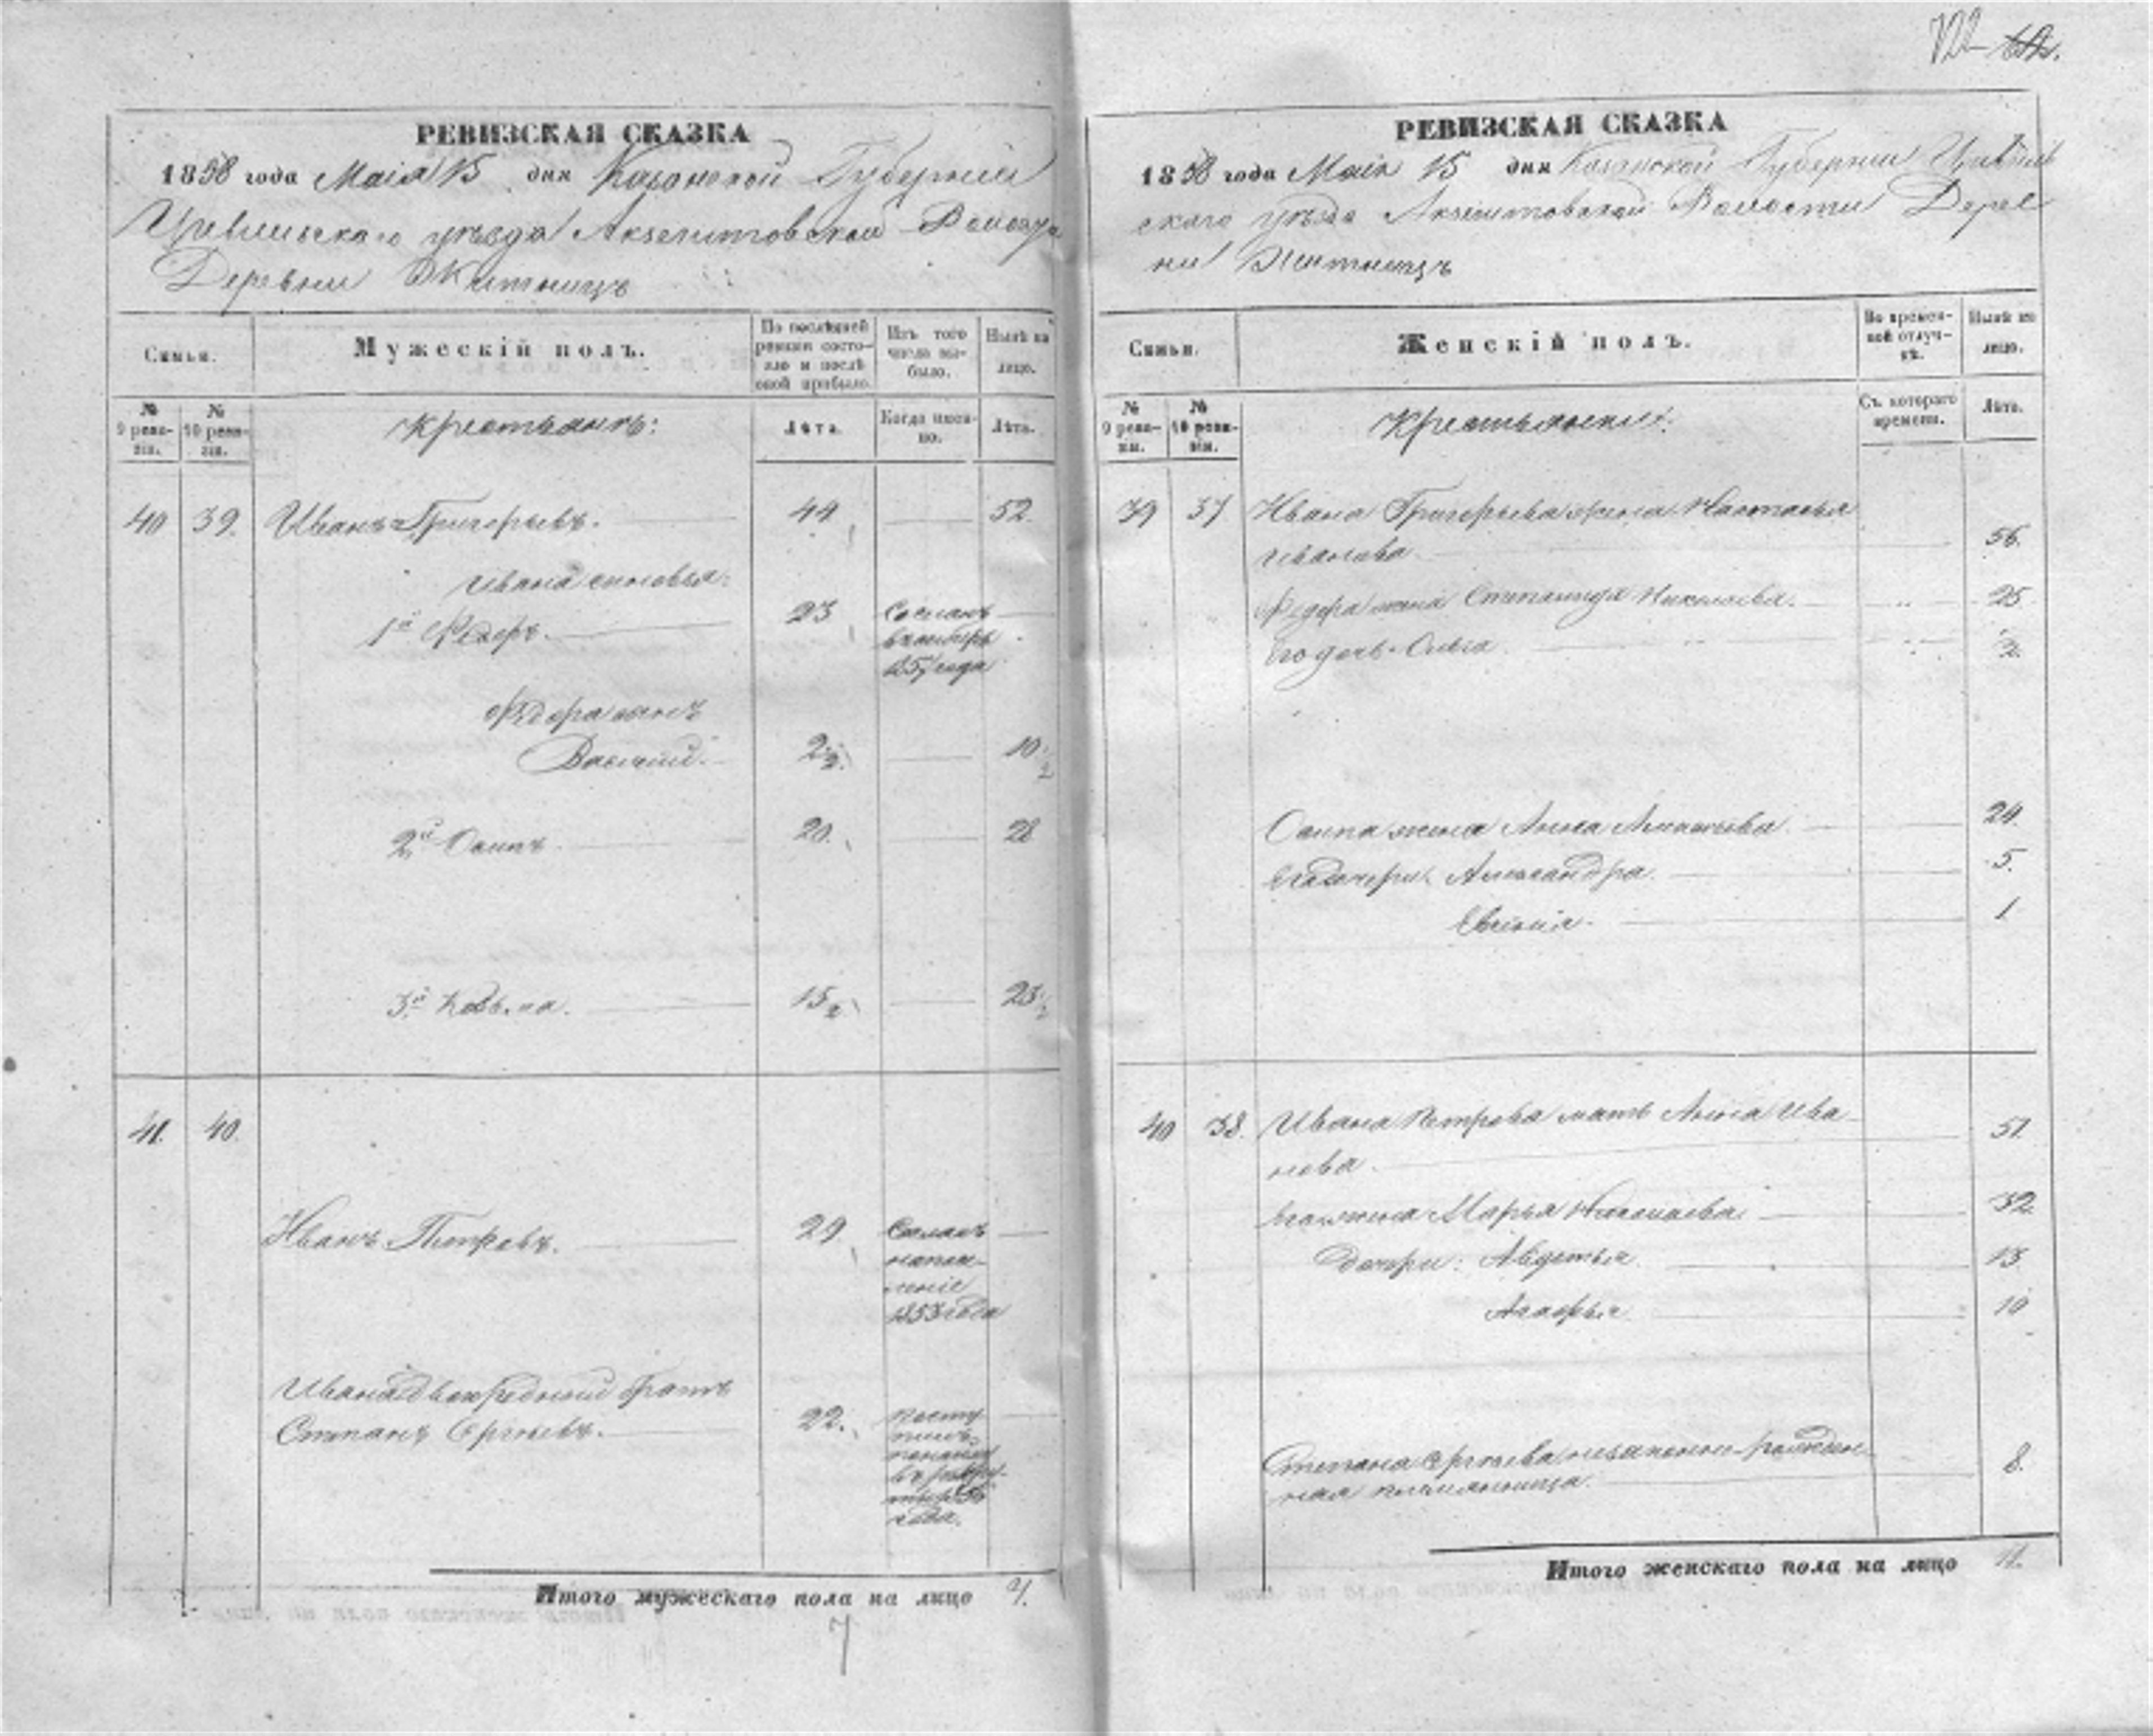 722
РЕВИЗСКАЯ СКАЗКА
1858 года Маiя 15 дня Казанской Губернiи
Цивильскаго уѣзда Волости
Деревни Житницъ
Семьи.
Мужескiй полъ.
По послѣдней ревизiи состояло и послѣ оной прибыло.
Изъ того числа выбыло.
Нынѣ на лицо.
№ 9 ревизiи.
№ 10 ревизiи.
Крестьянъ:
Лѣта.
Когда именно.
Лѣта.
40 39. Иванъ Григорьевъ. 44 52.
Ивана сыновья:
1й Федоръ. 23 Сосланъ
въ Сибирь
1857 года
Федора сынъ
Василiй. 2½ 10½
2й Осипъ. 20. 28
3й Козьма. 15½ 23½
41. 40.
Иванъ Петровъ. 29 Сосланъ
на поселенiе
1853 года
Ивана двоюродный братъ
Степанъ Сергѣевъ. 22.
года.
Итого мужескаго пола на лицо 4.
7
РЕВИЗСКАЯ СКАЗКА
1858 года Маiя 15 дня Казанской Губернiи Цивиль
скаго уѣзда Волости Дерев
ни Житницъ
Семьи.
Женскiй полъ.
Во временной отлучкѣ.
Нынѣ на лицо.
№ 9 ревизiи.
№ 10 ревизiи.
Крестьянскiя:
Съ котораго времени.
Лѣта.
39 37 Ивана Григорьева жена Настасья
Иванова. 56.
Федора жена Степанида Николаева. 25
Его дочь Ольга. 2.
Осипа жена Анна 24.
Его дочери: Александра. 5.
1
40 38. Ивана Петрова мать Анна Ива
нова. 51.
Его жена Марья Николаева. 32
Дочери: Авдотья. 13
10
Степана Сергѣева незаконно-рожден
ная племянница. 8.
Итого женскаго пола на лицо 11.